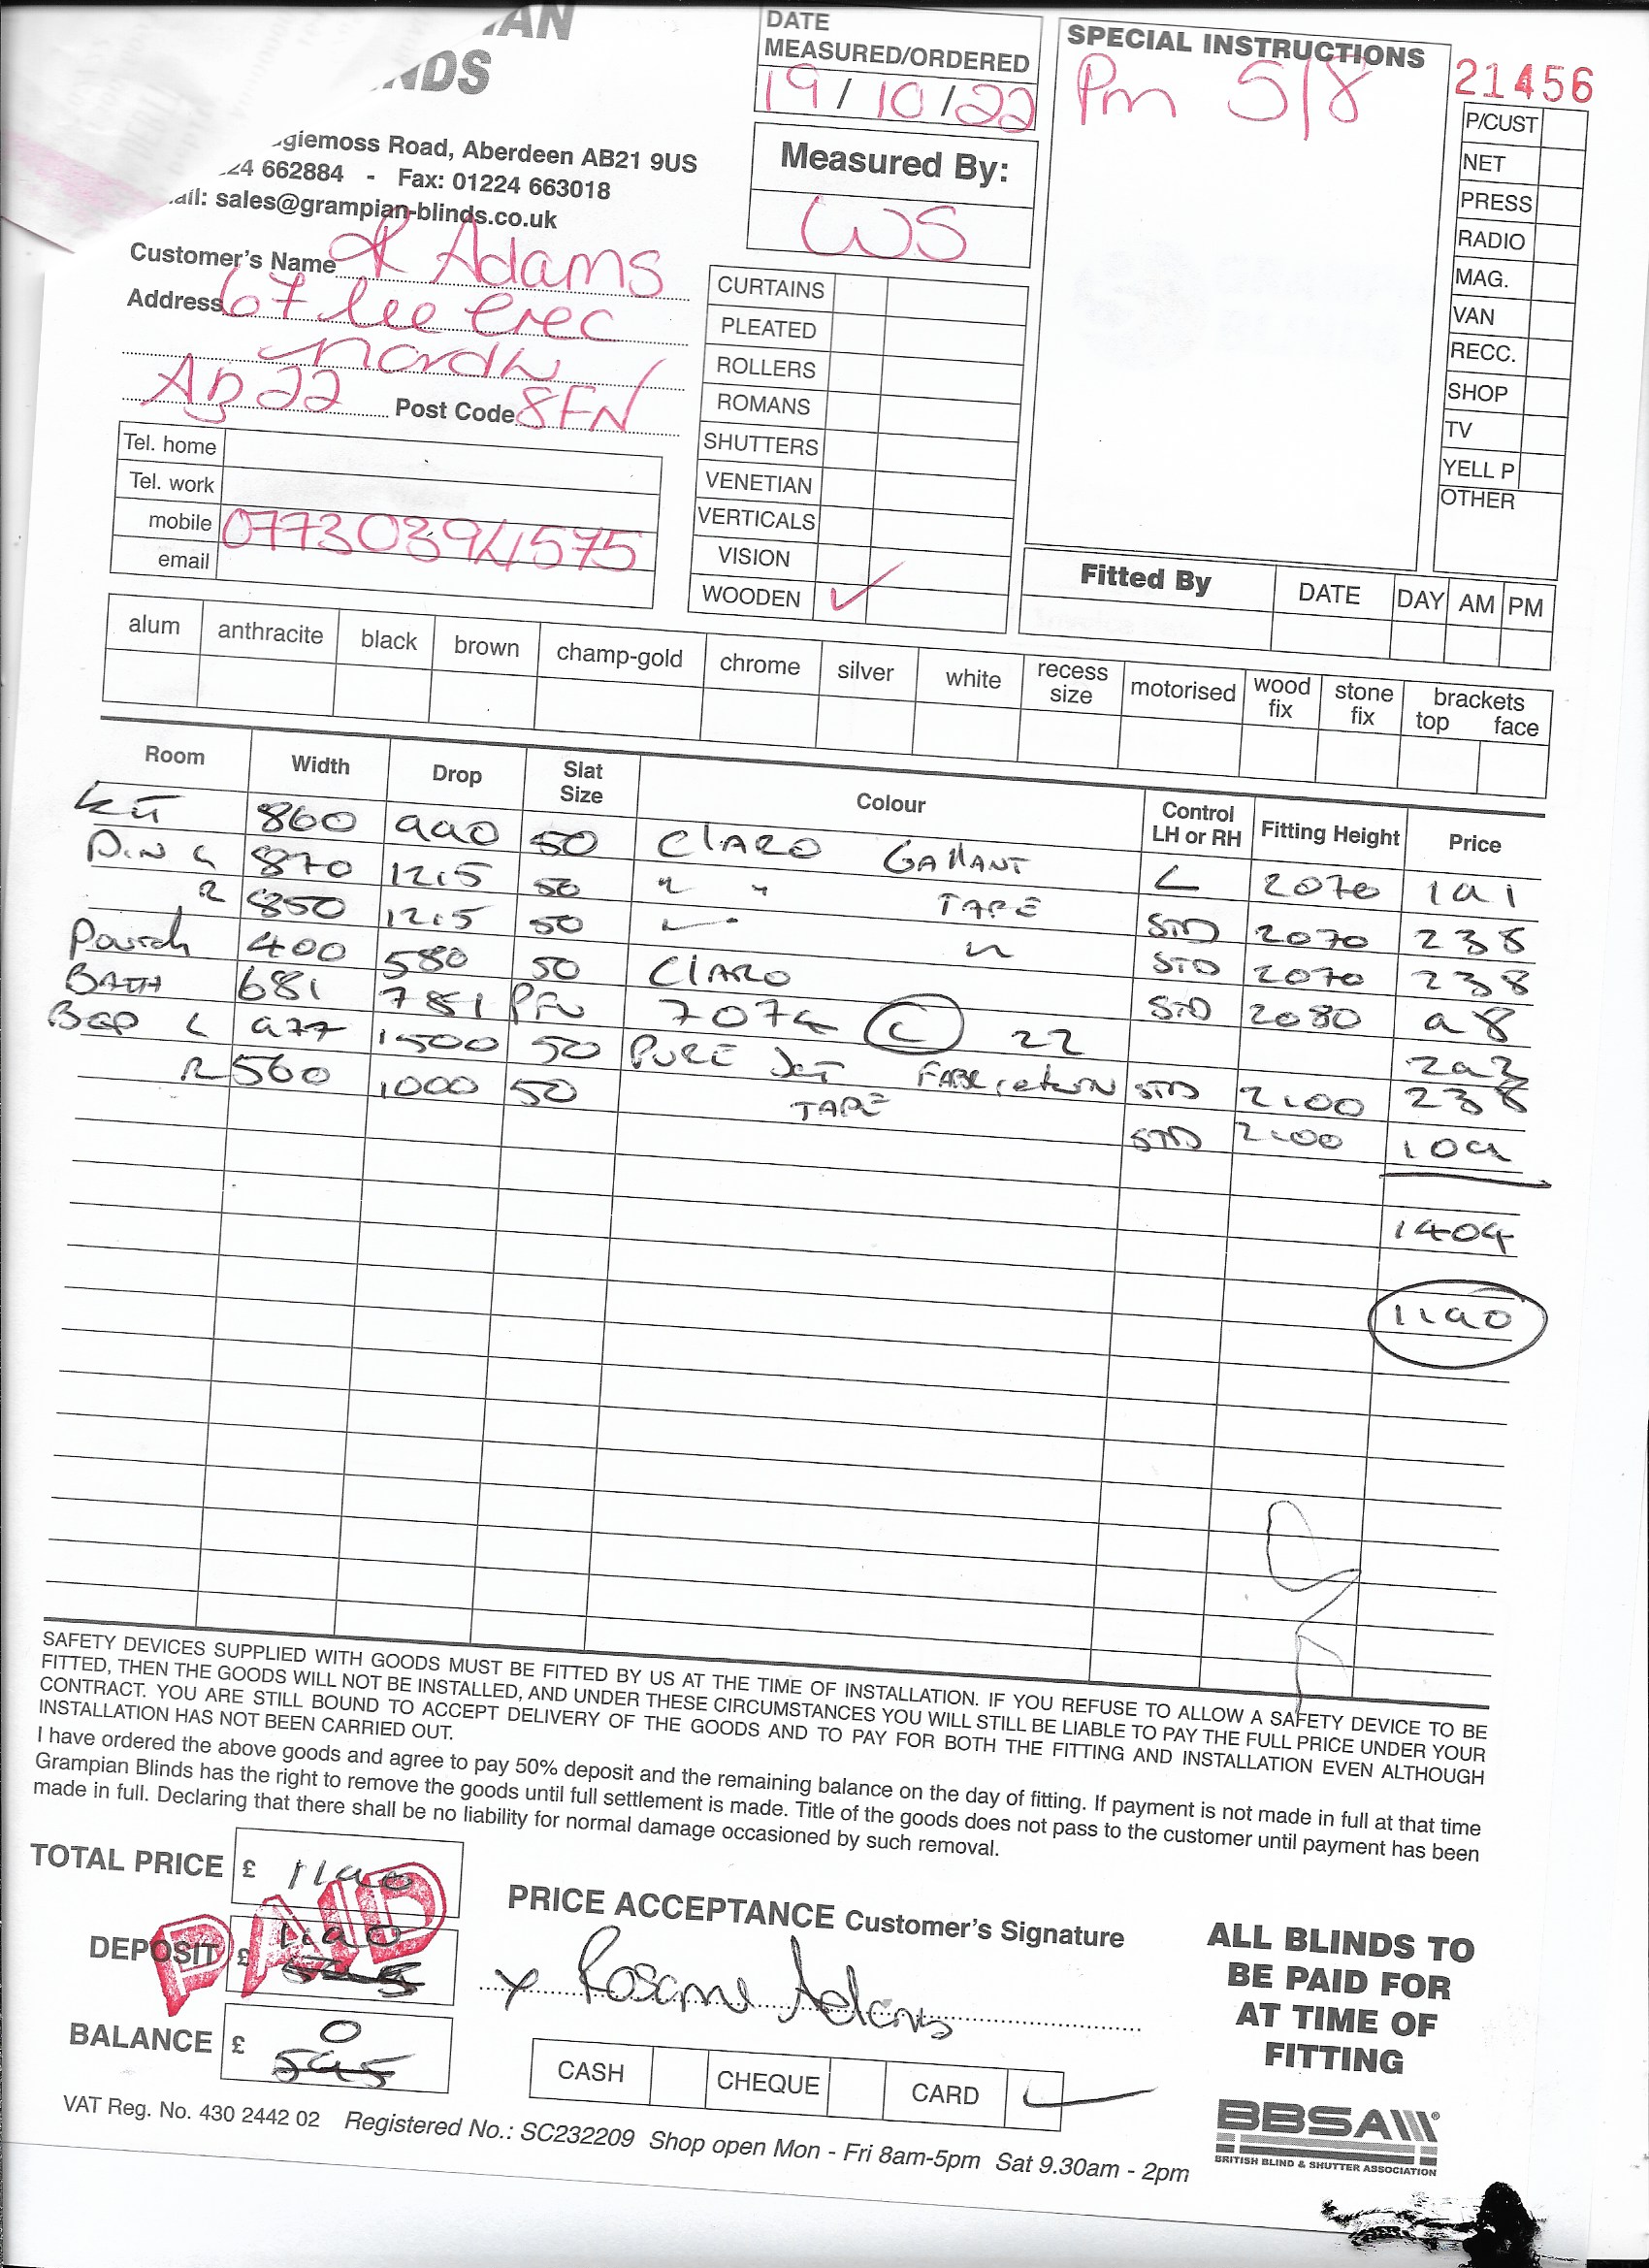 NDS
giemoss Road, Aberdeen AB21 9US
24 662884 - Fax: 01224 663018
ail: sales@grampian-blinds.co.uk
DATE MEASURED/ORDERED
19/10/22
Measured By:
WS
SPECIAL INSTRUCTIONS
Pm 5/8
21456
P/CUST
NET
PRESS
RADIO
MAG.
VAN
RECC.
SHOP
TV
YELL P
OTHER
Customer's Name R Adams
Address 67 lee Crec
AB22 Post Code 8FN
Tel. home
Tel. work
mobile 07730394575
email
CURTAINS
PLEATED
ROLLERS
ROMANS
SHUTTERS
VENETIAN
VERTICALS
VISION
WOODEN ✓
Fitted By DATE DAY AM PM
alum anthracite black brown champ-gold chrome silver white recess size motorised wood fix stone fix brackets top face
Room Width Drop Slat Size Colour Control LH or RH Fitting Height Price
Kit 860 990 50 CLARO GALLANT L 2070 191
Din L 870 1215 50 " " TAPE STD 2070 238
R 850 1215 50 " STD 2070 238
Porch 400 580 50 CLARO STD 2080 98
BATH 681 781 PFW 7074 C 22 292
BED L 977 1500 50 PURE FABRIC TAPE STD 2100 238
R 560 1000 50 STD 2100 109
1404
1190
SAFETY DEVICES SUPPLIED WITH GOODS MUST BE FITTED BY US AT THE TIME OF INSTALLATION. IF YOU REFUSE TO ALLOW A SAFETY DEVICE TO BE
FITTED, THEN THE GOODS WILL NOT BE INSTALLED, AND UNDER THESE CIRCUMSTANCES YOU WILL STILL BE LIABLE TO PAY THE FULL PRICE UNDER YOUR
CONTRACT. YOU ARE STILL BOUND TO ACCEPT DELIVERY OF THE GOODS AND TO PAY FOR BOTH THE FITTING AND INSTALLATION EVEN ALTHOUGH
INSTALLATION HAS NOT BEEN CARRIED OUT.
I have ordered the above goods and agree to pay 50% deposit and the remaining balance on the day of fitting. If payment is not made in full at that time
Grampian Blinds has the right to remove the goods until full settlement is made. Title of the goods does not pass to the customer until payment has been
made in full. Declaring that there shall be no liability for normal damage occasioned by such removal.
TOTAL PRICE £ 1190
DEPOSIT £ 1190
PAID
BALANCE £ 0
595
PRICE ACCEPTANCE Customer's Signature
x Rosanne Adams
CASH CHEQUE CARD ✓
ALL BLINDS TO
BE PAID FOR
AT TIME OF
FITTING
VAT Reg. No. 430 2442 02 Registered No.: SC232209 Shop open Mon - Fri 8am-5pm Sat 9.30am - 2pm
BBSA
BRITISH BLIND & SHUTTER ASSOCIATION